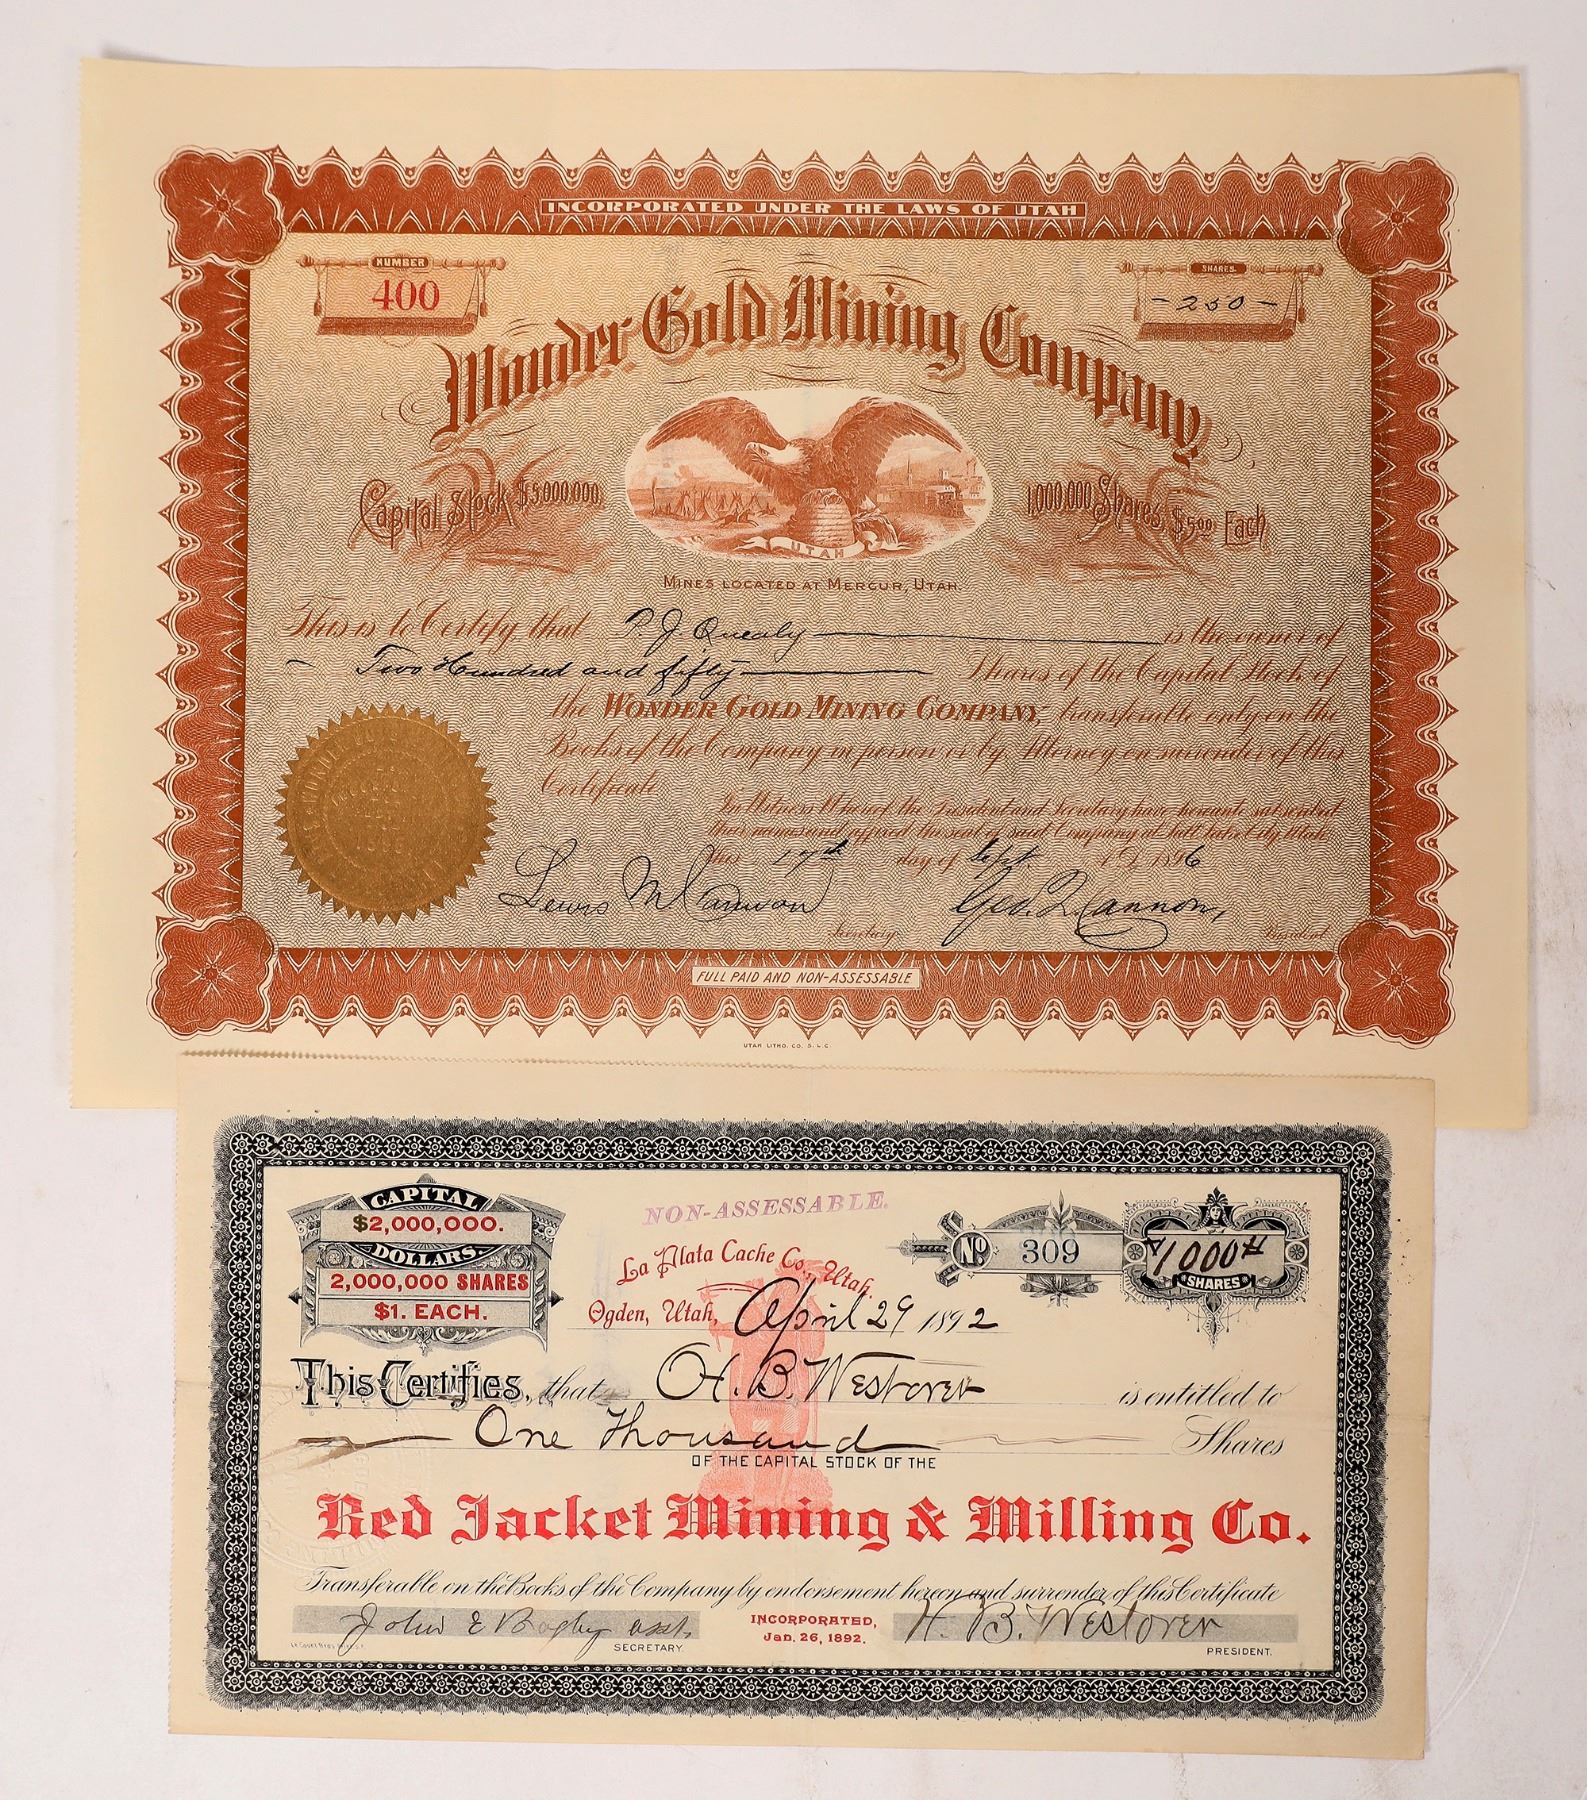 INCORPORATED UNDER THE LAWS OF UTAH
NUMBER
400
SHARES
-250-
Wonder Gold Mining Company
Capital Stock $5,000,000.
1,000,000 Shares, $5.00 Each
UTAH
MINES LOCATED AT MERCUR, UTAH.
This is to Certify that P. J. Quealy is the owner of
Two Hundred and fifty Shares of the Capital Stock of
the WONDER GOLD MINING COMPANY, transferable only on the
Books of the Company in person or by Attorney on surrender of this
Certificate
In Witness Whereof the President and Secretary have hereunto subscribed
their names and affixed the seal of said Company at Salt Lake City, Utah,
this 17th day of Sept. A.D. 1896
Lewis M Cannon Geo. Q. Cannon,
Secretary President
FULL PAID AND NON-ASSESSABLE
UTAH LITHO. CO. S.L.C.
CAPITAL
$2,000,000.
DOLLARS.
2,000,000 SHARES
$1. EACH.
NON-ASSESSABLE.
La Plata Cache Co., Utah.
Ogden, Utah, April 29 1892
No 309
1000
SHARES
This Certifies, that H. B. Westover is entitled to
One Thousand Shares
OF THE CAPITAL STOCK OF THE
Red Jacket Mining & Milling Co.
Transferable on the Books of the Company by endorsement hereon and surrender of this Certificate
John E Bagley asst. INCORPORATED, H. B. Westover
SECRETARY. Jan. 26, 1892. PRESIDENT.